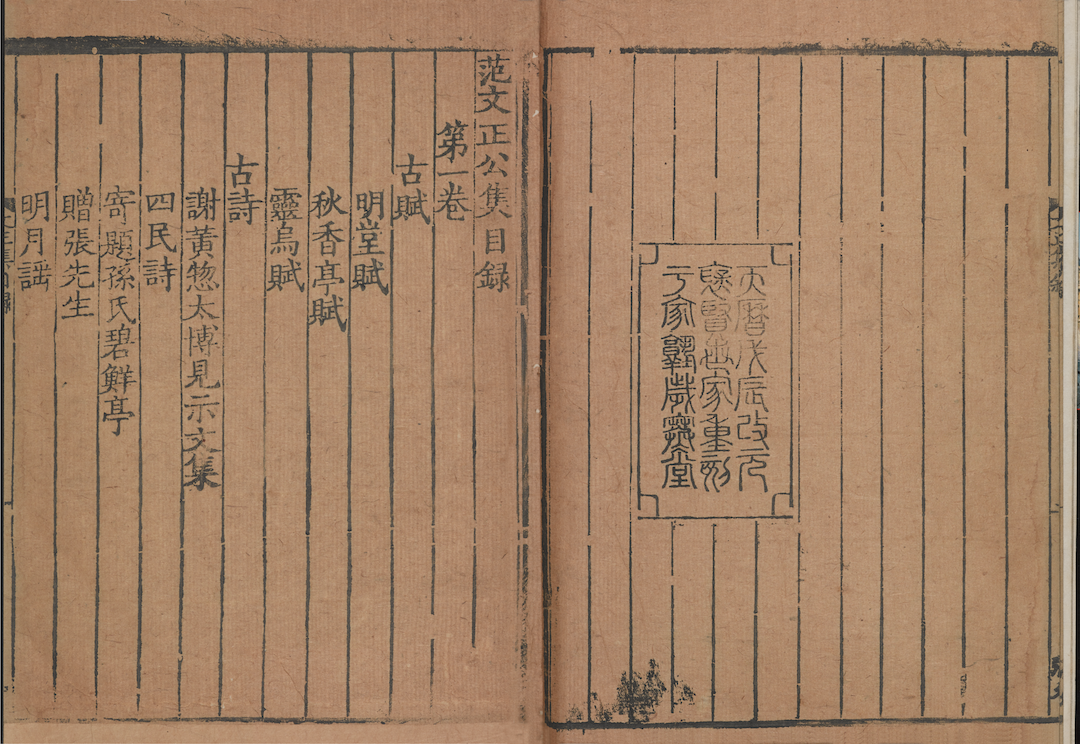 天曆戊辰改元
褒賢世家重刻
于家塾歲寒堂
范文正公集目録
第一卷
古賦
明堂賦
秋香亭賦
靈烏賦
古詩
謝黄惣太博見示文集
四民詩
寄題孫氏碧鮮亭
贈張先生
明月謡